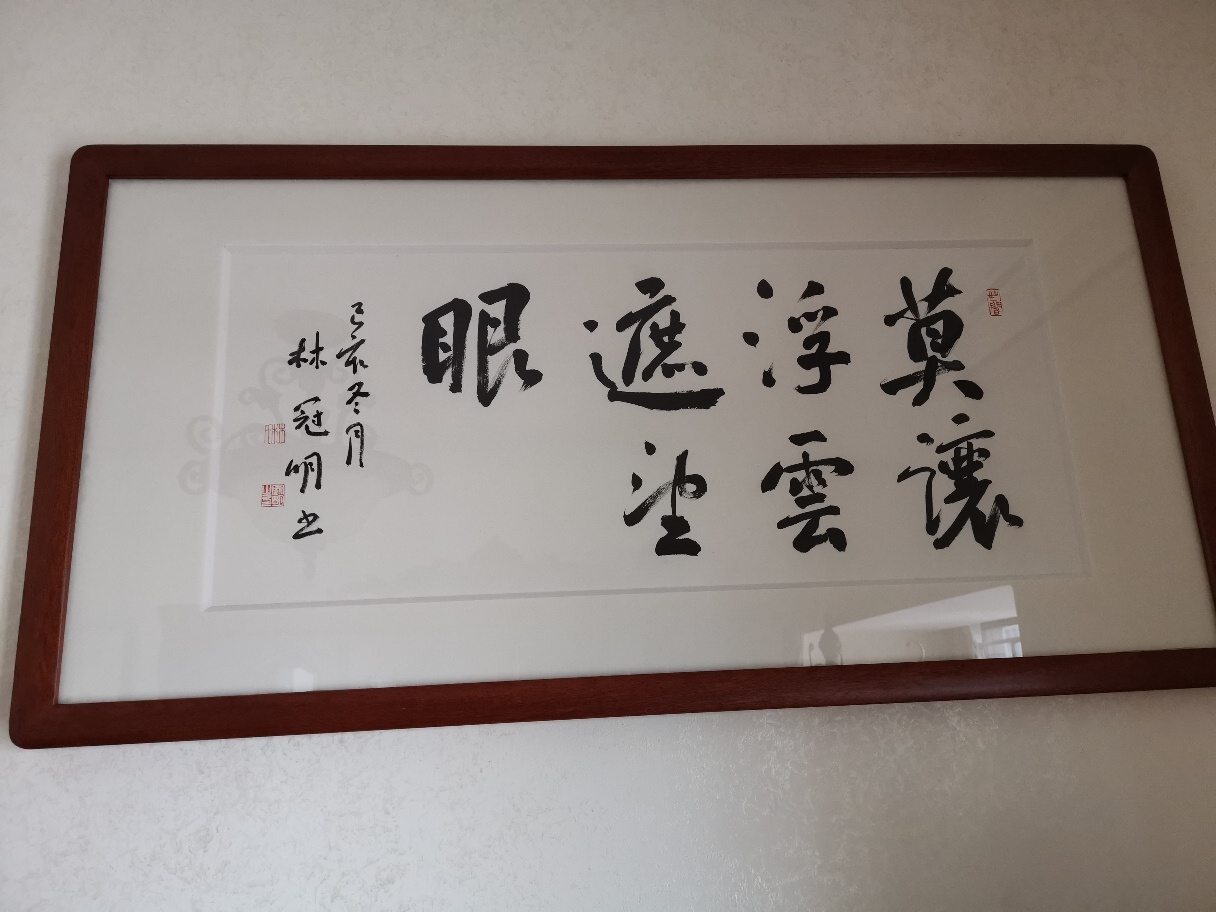 莫讓
浮雲
遮望
眼
己亥冬月
林冠明书